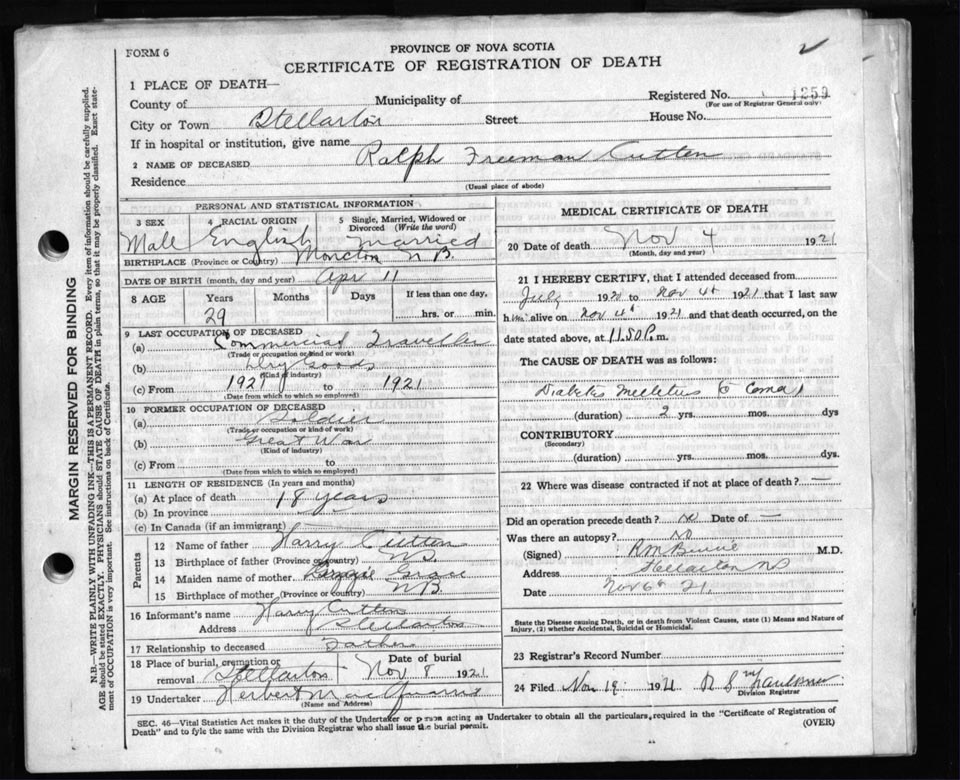 FORM 6
2
PROVINCE OF NOVA SCOTIA
CERTIFICATE OF REGISTRATION OF DEATH
1 PLACE OF DEATH—
County of Municipality of Registered No. 1259
(For use of Registrar General only)
City or Town Stellarton Street House No.
If in hospital or institution, give name
2 NAME OF DECEASED Ralph Freeman Cutten
Residence
(Usual place of abode)
PERSONAL AND STATISTICAL INFORMATION
3 SEX 4 RACIAL ORIGIN 5 Single, Married, Widowed or Divorced (Write the word)
Male English Married
BIRTHPLACE (Province or Country) Moncton N.B.
DATE OF BIRTH (month, day and year) Apr 11
8 AGE Years Months Days If less than one day,
29 hrs. or min.
9 LAST OCCUPATION OF DECEASED
(a) Commercial Traveller
(Trade or occupation or kind or work)
(b) Dry Goods
(Kind of industry)
(c) From 1921 to 1921
(Date from which to which so employed)
10 FORMER OCCUPATION OF DECEASED
(a) Soldier
(Trade or occupation or kind of work)
(b) Great War
(Kind of industry)
(c) From to
(Date from which to which so employed)
11 LENGTH OF RESIDENCE (In years and months)
(a) At place of death 18 years
(b) In province
(c) In Canada (if an immigrant)
Parents
12 Name of father Harry Cutten
13 Birthplace of father (Province or country) N.S.
14 Maiden name of mother
15 Birthplace of mother (Province or country) N.B.
16 Informant's name Harry Cutten
Address Stellarton
17 Relationship to deceased Father
18 Place of burial, cremation or removal Stellarton Date of burial Nov 8 1921
19 Undertaker Herbert
(Name and Address)
MEDICAL CERTIFICATE OF DEATH
20 Date of death Nov 4 1921
(Month, day and year)
21 I HEREBY CERTIFY, that I attended deceased from
July 1920 to Nov 4th 1921 that I last saw
him alive on Nov 4th 1921 and that death occurred, on the
date stated above, at 11.50 P. m.
The CAUSE OF DEATH was as follows:
Diabetes Meeletus (Coma)
(duration) 2 yrs. mos. dys
CONTRIBUTORY
(Secondary)
(duration) yrs. mos. dys.
22 Where was disease contracted if not at place of death? —
Did an operation precede death? No Date of —
Was there an autopsy? No
(Signed) M.D.
Address Stellarton NS
Date Nov 6th 21.
State the Disease causing Death, or in death from Violent Causes, state (1) Means and Nature of
Injury, (2) whether Accidental, Suicidal or Homicidal.
23 Registrar's Record Number
24 Filed Nov 19 1921
Division Registrar
SEC. 46—Vital Statistics Act makes it the duty of the Undertaker or person acting as Undertaker to obtain all the particulars, required in the "Certificate of Registration of
Death" and to fyle the same with the Division Registrar who shall issue the burial permit. (OVER)
MARGIN RESERVED FOR BINDING
N.B.—WRITE PLAINLY WITH UNFADING INK—THIS IS A PERMANENT RECORD. Every item of information should be carefully supplied.
AGE should be stated EXACTLY. PHYSICIANS should STATE CAUSE OF DEATH in plain terms, so that it may be properly classified. Exact statement of OCCUPATION is very important. See instructions on back of Certificate.